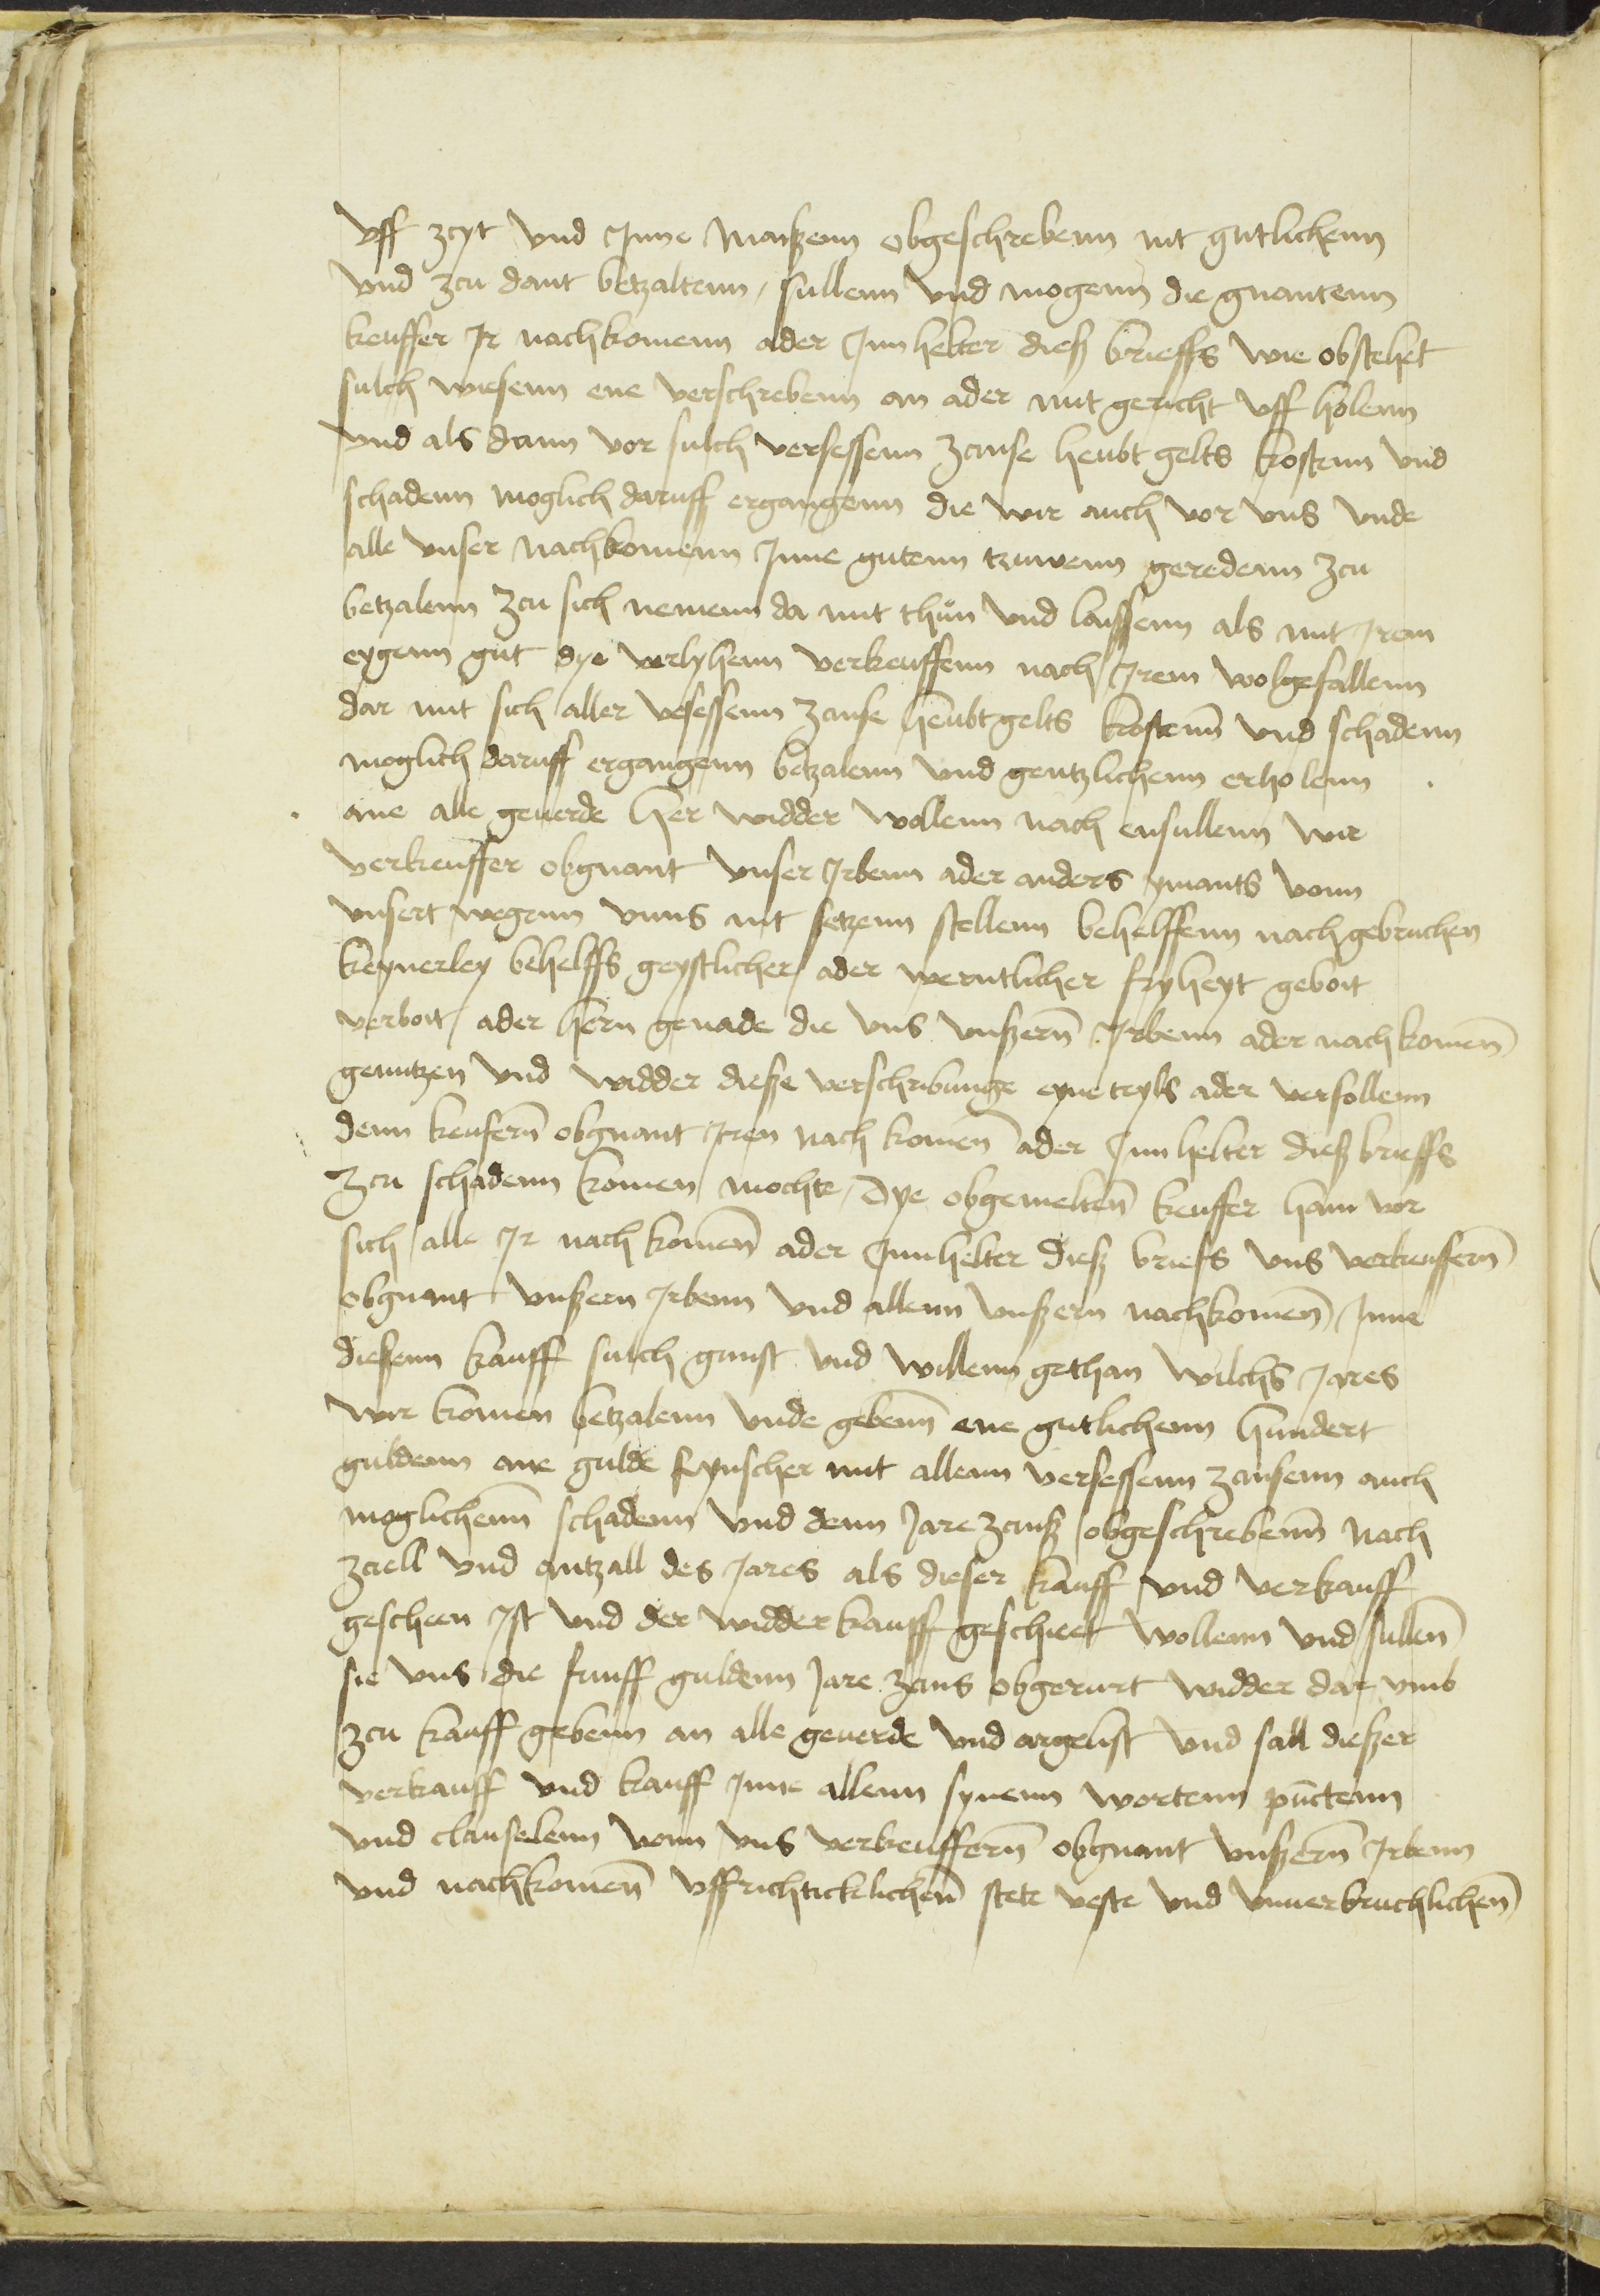 vff zcyt vnd Jnne Maißenn obgeschrebenn nit gutlichenn
vnd zcu dant betzaltenn, sullenn vnd mogenn die gnantenn
keuffer Jr nachkomenn ader Jnnhelter dieß brieffs wie obstehet
sulch wiesenn ene verschrebenn an ader mit gericht vff holenn
vnd als dann vor sulch versessenn zcinse heubt gelts kostenn vnd
schadenn moglich daruff ergangenn die wir auch vor vns vnde
alle vnser nachkomenn Jnne gutenn truwenn geredenn zcu
betzalenn zcu sich nemenn da mit thůn vnd laissenn als mit Jrem
eygenn gut dye verlyhenn verkeuffenn nach Jrem wolgefallenn
dar mit sich aller vesessenn zcinse heubtgelts kostenn vnd schadenn
moglich daruff ergangenn betzalenn vnd gentzlichenn erholenn
ane alle geuerde Her widder wollenn nach ensullenn wir
verkeuffer obgnant vnser Jrbenn ader anders ymants vonn
vnsert wegenn vnns nit setzenn stellenn behelffenn nach gebruchen
keynerley behelffs geystlicher ader werntlicher fryheyt geboit
verboit, ader hern genade die vns vnßern̄ Jrbenn ader nachkomen̄
genutzen vnd widder diesse verschribunge eyneteyls ader versollenn
denn keufern̄ obgnant Jren nach komen̄ ader Jnnhelter dieß brieffs
zcu schadenn komen mochte, Dye obgemelten̄ keuffer hann vor
sich alle Jr nach komen̄ ader Jnnhelter dieß briefs vns verkeuffern̄
obgnant vnßern Jrbenn vnd allenn vnßern nachkomen̄ Jnne
diesenn kauff sulch gunst vnd willenn gethan wilchs Jares
wir komen betzalenn vnde geben̄ ene gutlichenn hundert
guldenn ane gulde Rynscher mit allenn versessenn zcinsenn auch
moglichenn̄ schadenn vnd denn Jare zcinß obgeschrebenn̄ nach
zciell vnd antzall des Jares als dieser kauff vnd verkauff
gescheen Ist vnd der widderkauff geschieet wollenn vnd sullen̄
sie vns die funff guldenn Jare zcins obgerurt widder dar vmb
zcu kauff gebenn an alle geuerde vnd argelist vnd sall dießer
verkauff vnd kauff Jnne allenn synenn wortenn pūctenn
vnd clauselenn vonn vns verkeuffern̄ obgnant vnßern̄ Jrbenn
vnd nachkomen̄ vffrichticklichen̄ stete veste vnd vnuerbruchlichen̄